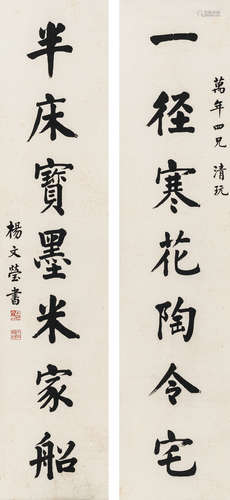 萬年四兄 清玩
一径寒花陶令宅
半床寶墨米家船
楊文瑩書